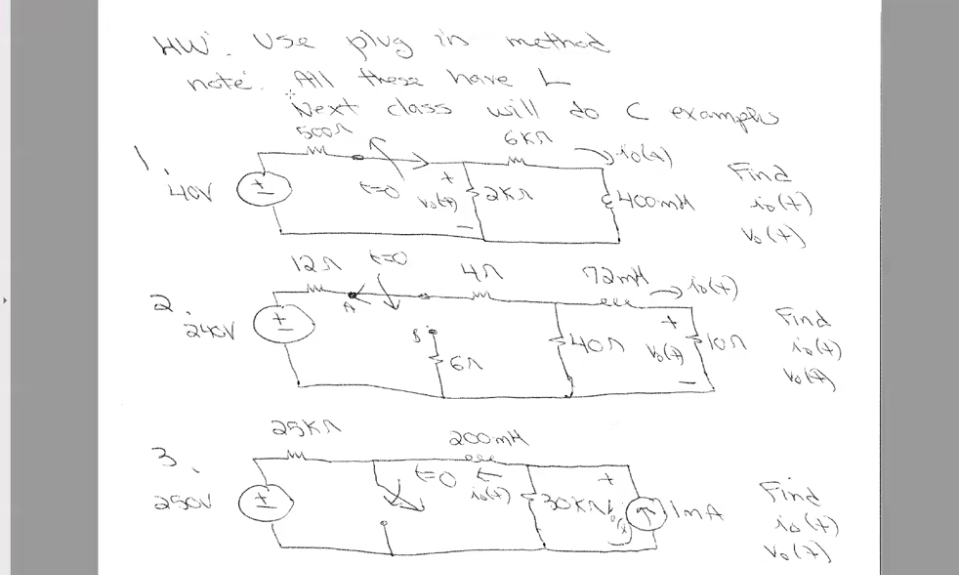 HW. Use plug in method
note. All these have L
Next class will do C examples
1.
500Ω
6KΩ
i₀(t)
40V
t=0
+
V₀(t)
-
2KΩ
400mH
Find
i₀(t)
V₀(t)
2.
12Ω
t=0
4Ω
72mH
i₀(t)
240V
A
B
6Ω
40Ω
+
V₀(t)
-
10Ω
Find
i₀(t)
V₀(t)
3.
25KΩ
200mH
250V
t=0
i₀(t)
30KΩ
+
1mA
Find
i₀(t)
V₀(t)